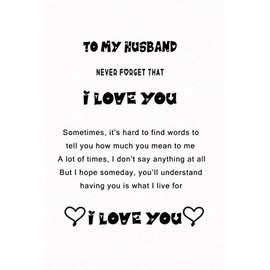 TO MY HUSBAND
NEVER FORGET THAT
I LOVE YOU
Sometimes, it's hard to find words to
tell you how much you mean to me
A lot of times, I don't say anything at all
But I hope someday, you'll understand
having you is what I live for
I LOVE YOU